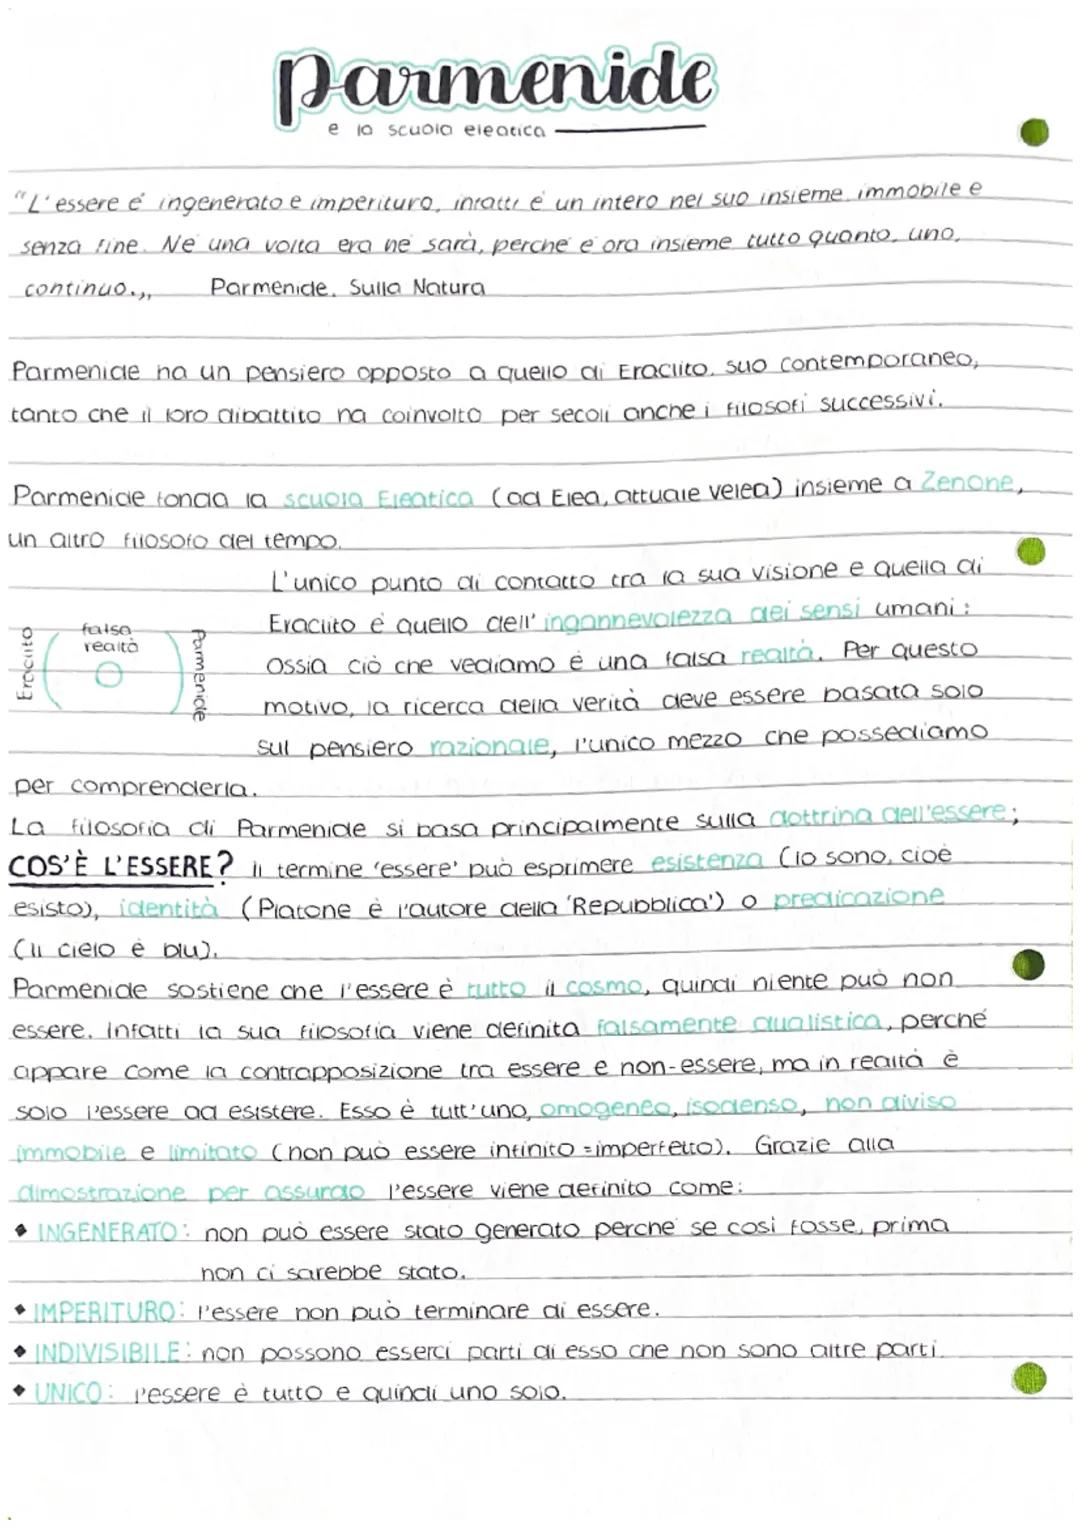 Parmenide
e la scuola eleatica
"L'essere é ingenerato e imperituro, infatti é un intero nel suo insieme, immobile e
senza fine. Né una volta era né sarà, perché é ora insieme tutto quanto, uno,
continuo.,, Parmenide, Sulla Natura
Parmenide ha un pensiero opposto a quello di Eraclito, suo contemporaneo,
tanto che il loro dibattito ha coinvolto per secoli anche i filosofi successivi.
Parmenide fonda la scuola Eleatica (ad Elea, attuale Velea) insieme a Zenone,
un altro filosofo del tempo.
L'unico punto di contatto tra la sua visione e quella di
Eraclito è quello dell'ingannevolezza dei sensi umani:
ossia ciò che vediamo è una falsa realtà. Per questo
motivo, la ricerca della verità deve essere basata solo
sul pensiero razionale, l'unico mezzo che possediamo
Eraclito
falsa
realtà
Parmenide
per comprenderla.
La filosofia di Parmenide si basa principalmente sulla dottrina dell'essere;
COS'È L'ESSERE? Il termine 'essere' può esprimere esistenza (Io sono, cioè
esisto), identità (Platone è l'autore della 'Repubblica') o predicazione
(Il cielo è blu).
Parmenide sostiene che l'essere è tutto il cosmo, quindi niente può non
essere. Infatti la sua filosofia viene definita falsamente dualistica, perché
appare come la contrapposizione tra essere e non-essere, ma in realtà è
solo l'essere ad esistere. Esso è tutt'uno, omogeneo, isodenso, non diviso
immobile e limitato (non può essere infinito = imperfetto). Grazie alla
dimostrazione per assurdo l'essere viene definito come:
◆ INGENERATO: non può essere stato generato perché se così fosse, prima
non ci sarebbe stato.
◆ IMPERITURO: l'essere non può terminare di essere.
◆ INDIVISIBILE: non possono esserci parti di esso che non sono altre parti.
◆ UNICO: l'essere è tutto e quindi uno solo.